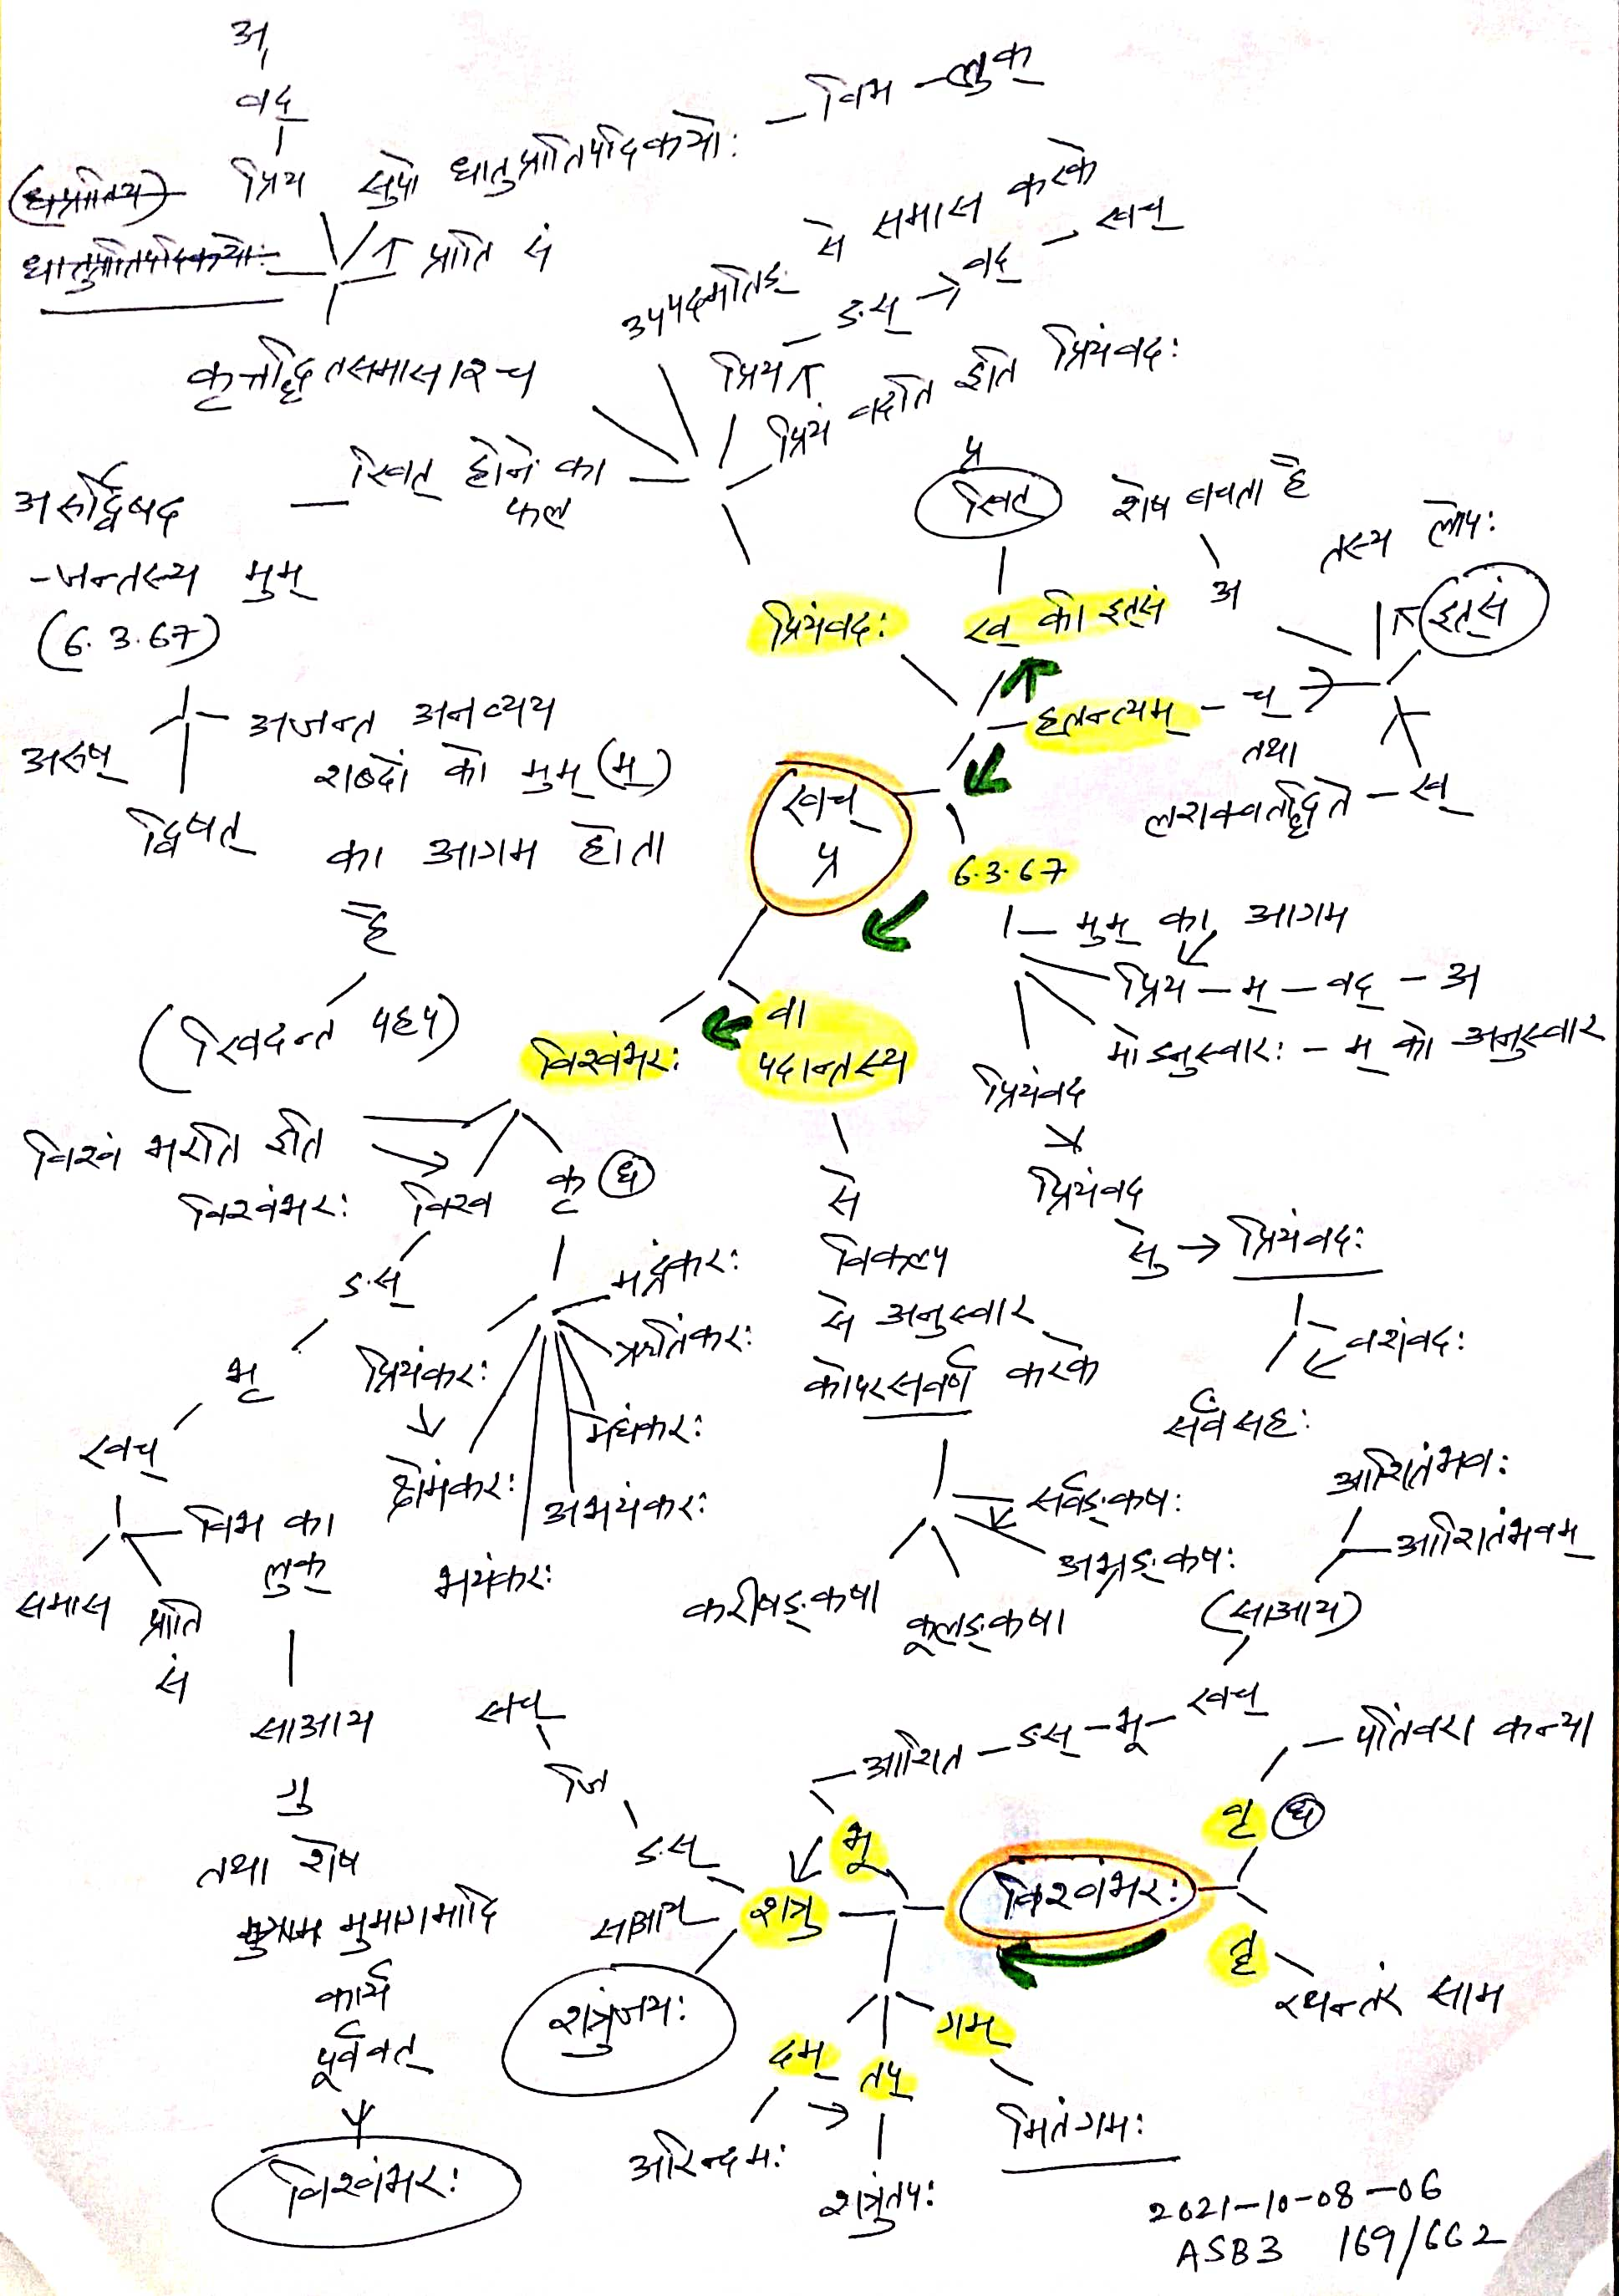 अ
वद्
प्रिय सुपो धातुप्रातिपदिकयोः – विभ – लुक्
धातुप्रातिपदिकयोः
प्राति सं
कृत्तद्धितसमासाश्च
उपपदमतिङ् से समास करके
प्रिय – ङस् → वद् – खच्
प्रियं वदति इति प्रियंवदः
खित् होने का
फल
अरुर्द्विषद
-जन्तस्य मुम्
(6.3.67)
अरुष्
द्विषत्
अजन्त अनव्यय
शब्दों को मुम् (म्)
का आगम होता
है
(खिदन्त पहप)
प्र
खित्
शेष बचता है
तस्य लोपः
प्रियंवदः
ख् की इत्सं
अ
इत्सं
हलन्त्यम् – च्
तथा
लशक्वतद्धिते – ख्
खच्
प्र
6.3.67
मुम् का आगम
प्रिय – म् – वद् – अ
मोऽनुस्वारः – म् को अनुस्वार
प्रियंवद
प्रियंवद
सु → प्रियंवदः
वशंवदः
सर्वंसहः
विश्वंभरः
वा
पदान्तस्य
से
विकल्प
से अनुस्वार
को परसवर्ण करके
सर्वङ्कषः
अभ्रङ्कषः
कूलङ्कषा
करीषङ्कषा
विश्वं भरति इति
विश्वंभरः
विश्व
ङस्
भृ
खच्
समास
प्राति
सं
विभ का
लुक्
साआय
गु
तथा शेष
मुमागमादि
कार्य
पूर्ववत्
विश्वंभरः
कृ ध
मद्रंकरः
ऋतिंकरः
मेघंकरः
अभयंकरः
भयंकरः
प्रियंकरः
क्षेमंकरः
आशितंभवः
आशितंभवम्
(साआय)
आशित – ङस् – भू – खच्
खच्
जि
ङस्
साआय
भू
शत्रु
शत्रुंजयः
विश्वंभरः
वृ ध
पतिंवरा कन्या
तॄ
रथन्तरं साम
दम्
अरिन्दमः
तप्
शत्रुंतपः
गम्
मितंगमः
2021-10-08-06
ASB3 169/662